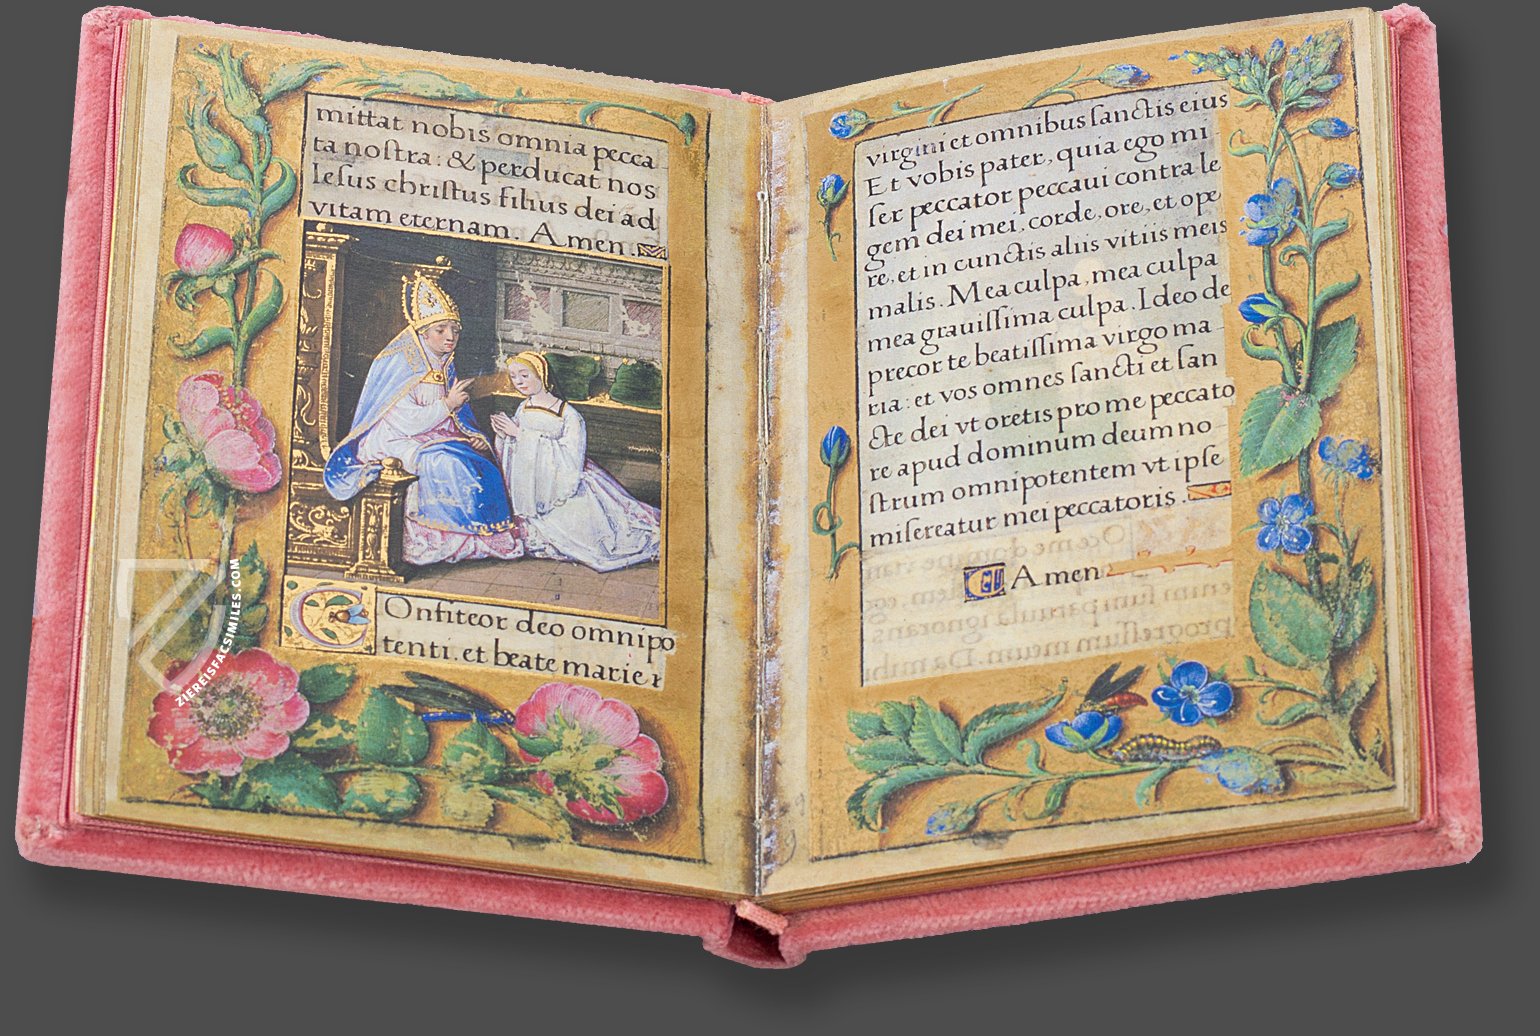 mittat nobis omnia pecca
ta noſtra: & perducat nos
Ieſus chriſtus filius dei ad
vitam eternam. Amen.
COnfiteor deo omnipo
tenti. et beate marie v
virgini et omnibus ſanctis eius
Et vobis pater, quia ego mi
ſer peccator peccaui contra le
gem dei mei, corde, ore, et ope
re, et in cunctis aliis vitiis meis
malis. Mea culpa, mea culpa
mea grauiſſima culpa. Ideo de
precor te beatiſſima virgo ma
ria: et vos omnes ſancti et ſan
cte dei vt oretis pro me peccato
re apud dominum deum no
ſtrum omnipotentem vt ipſe
miſereatur mei peccatoris.
Amen
ZIEREISFACSIMILES.COM